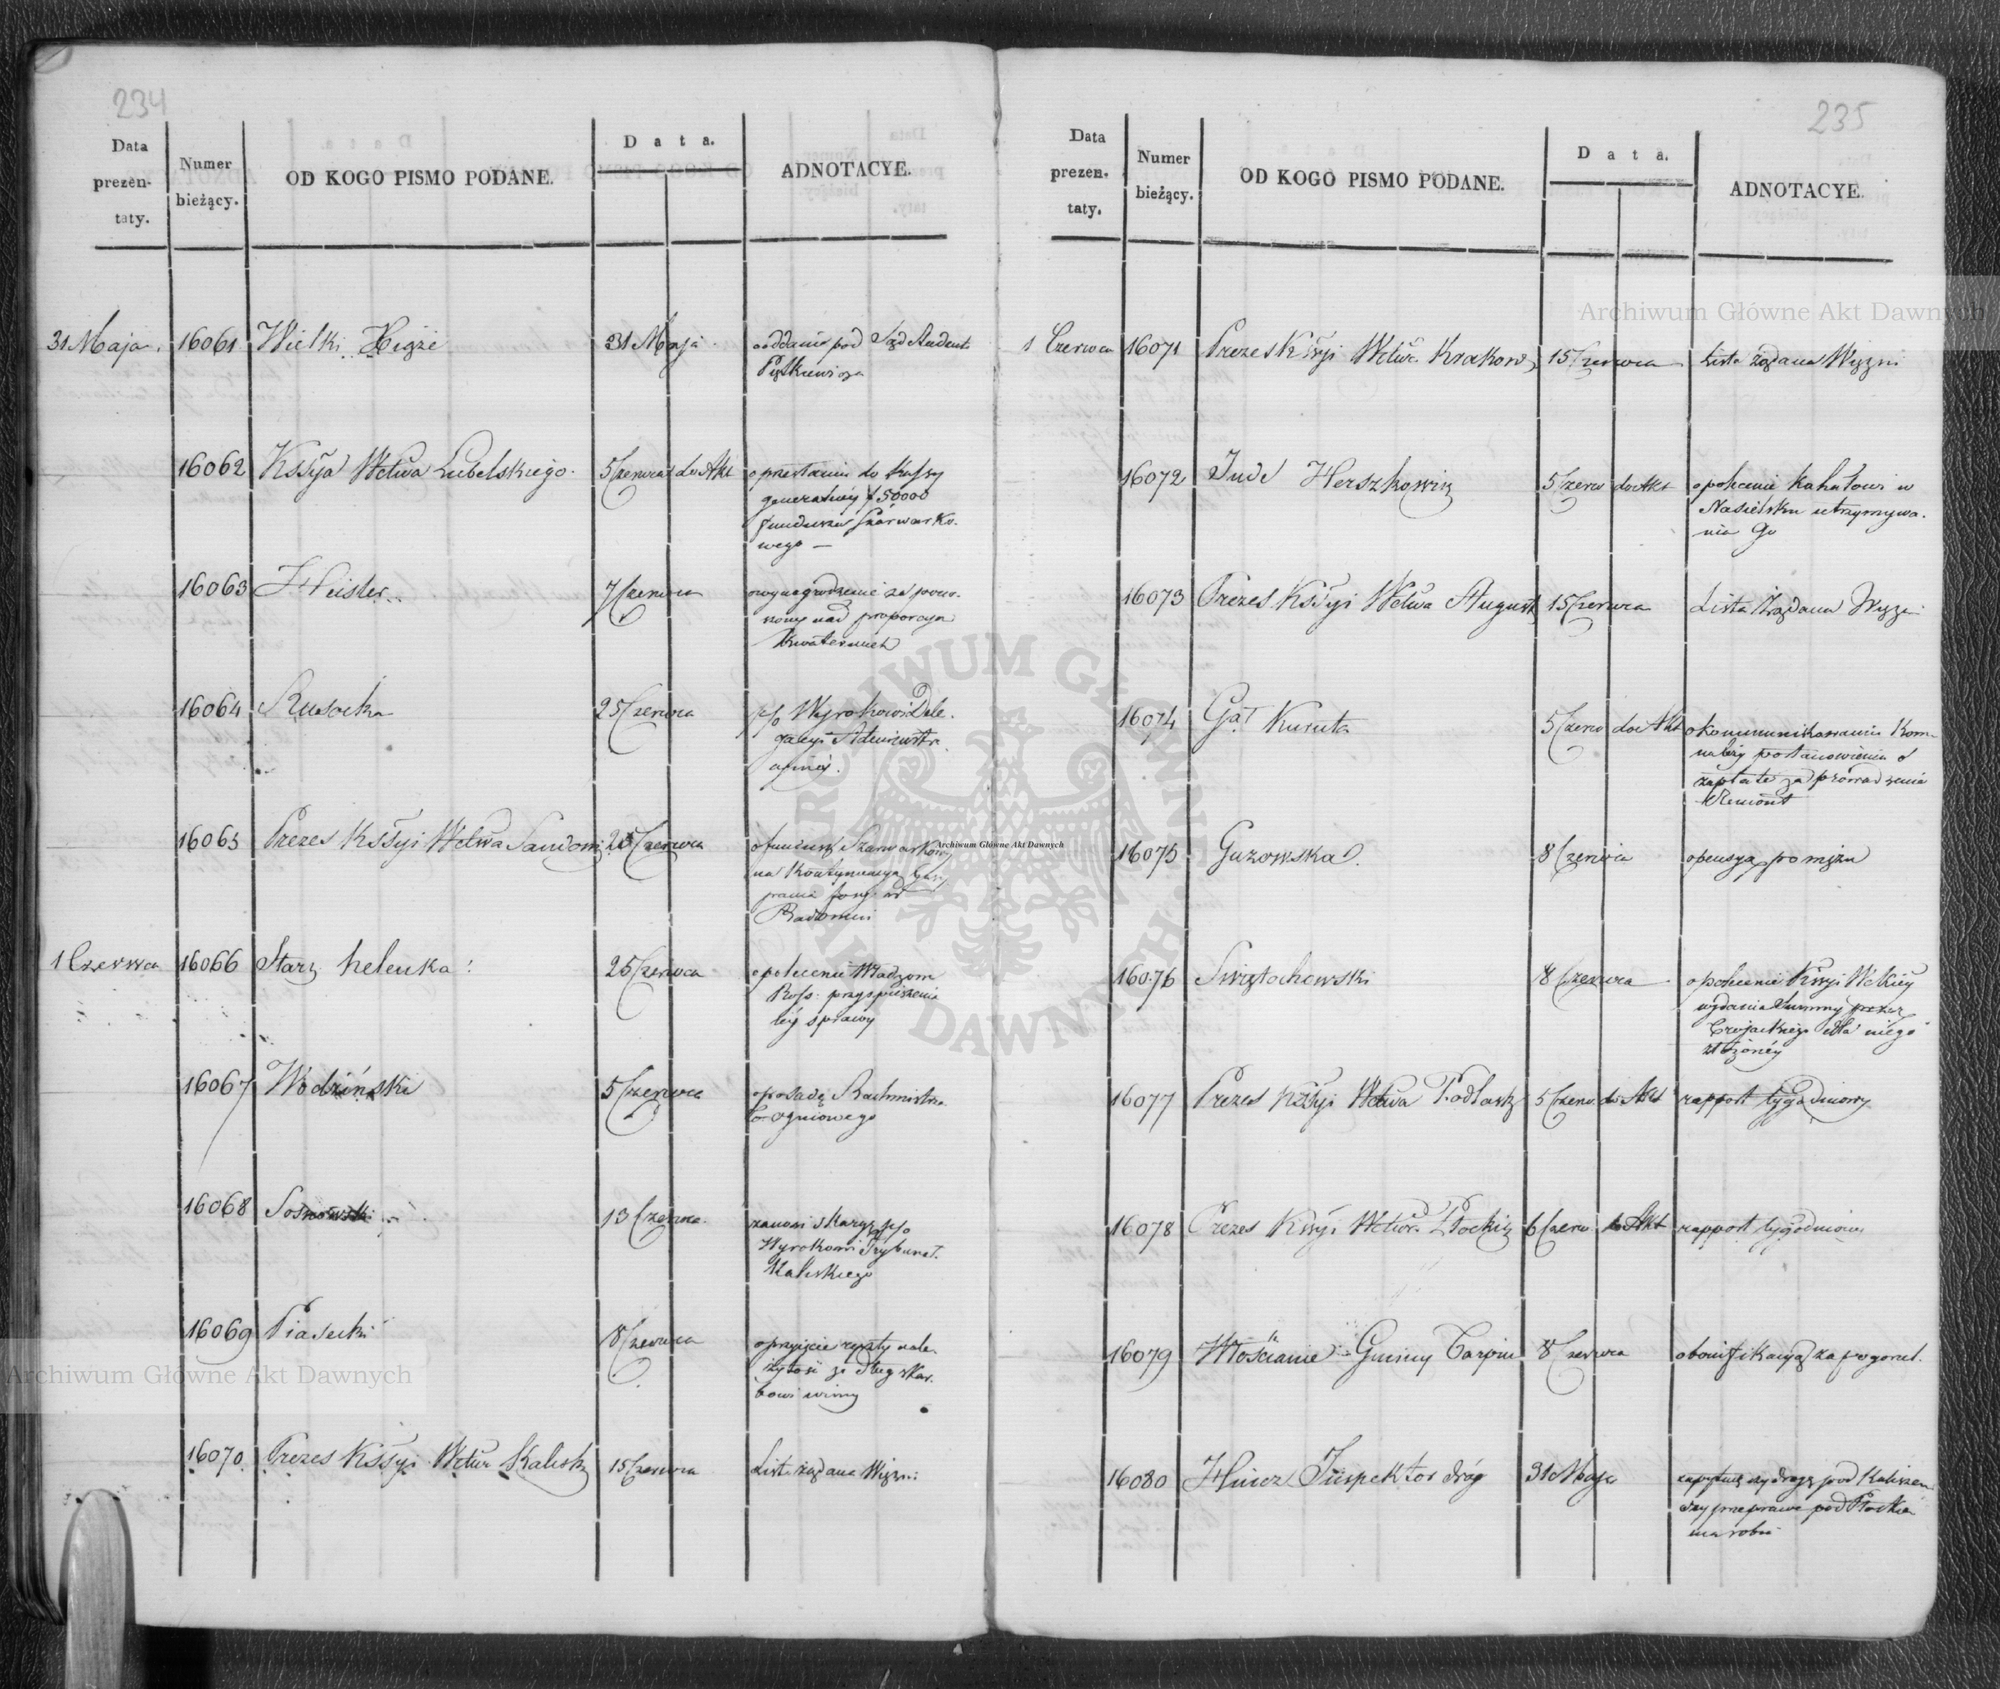 234
Data
prezen-
taty.
Numer
bieżący.
OD KOGO PISMO PODANE.
Data.
ADNOTACYE.
31 Maja. 16061 Wielki Xiąże 31 Maja oddanie pod Sąd Student
Piątkiewicza
16062 Kssyja Wctwa Lubelskiego. 5 Czerwca do Akt o przesłaniu do Kassy
generalney f 50000
funduszu Szarwarko-
wego —
16063 Heister 7 Czerwca o wynagrodzenie za
nad proporcyą
16064 Rusocka 25 Czerwca p/o Wyrokowi Dele-
gacyi Administra-
cyinéy.
16065 Prezes Kssyi Wctwa Sandomi 25 Czerwca o fundusz Szarwarkowy
na
Radomiu
1 Czerwca 16066 Starz. helenka: 25 Czerwca o polecenie Władzom
Ross. przyspieszenia
téy sprawy
16067 Wodziński 5 Czerwca o posadę Rachmistrza
Ogniowego
16068 Sosnowski 13 Czerwca zanosi skargę p/o
Wyrokowi Trybunał.
Kaliskiego
16069 Piasecki 8 Czerwca o przyięcie reszty nale-
żytości
winny
16070 Prezes Kssyi Wctwa Kalisk 15 Czerwca Lista żądana Więzni
235
Data
prezen.
taty.
Numer
bieżący.
OD KOGO PISMO PODANE.
Data.
ADNOTACYE.
1 Czerwca 16071 Prezes Kssyi Wctwa Krakow 15 Czerwca Lista żądana Więzni
16072 Jude Herszkowicz 5 Czerw do Akt o polecenie Kahałowi w
Nasielsku utrzymywa-
nia Go
16073 Prezes Kssyi Wctwa August 15 Czerwca Lista Żądana Więzn
16074 Gał Kuruta 5 Czerw do Akt o kommunikowanie Kom
postanowienia o
zapłatę za prowadzenie
Remont
16075 Guzowska. 8 Czerwca o pensyą po mężu
16076 Świętochowski 8 Czerwca o polecenie Kssyi Wckiéy
wydania Summy przez
Trojackiego dla niego
złożonéy
16077 Prezes Kssyi Wctwa Podlask 5 Czerw. do Akt rapport tygodniowy
16078 Prezes Kssyi Wctwa Płockie 6 Czerw do Akt rapport tygodniowy
16079 Włościanie Gminy Tarpin 8 Czerwca o bonifikacyą za pogorzel.
16080 Hincz Inspektor dróg 31 Maja zapytuię czy drogę pod Kaliszem
czy przeprawę pod Płockie
ma robić
Archiwum Główne Akt Dawnych
Archiwum Główne Akt Dawnych
Archiwum Główne Akt Dawnych
ARCHIWUM GŁÓWNE AKT DAWNYCH